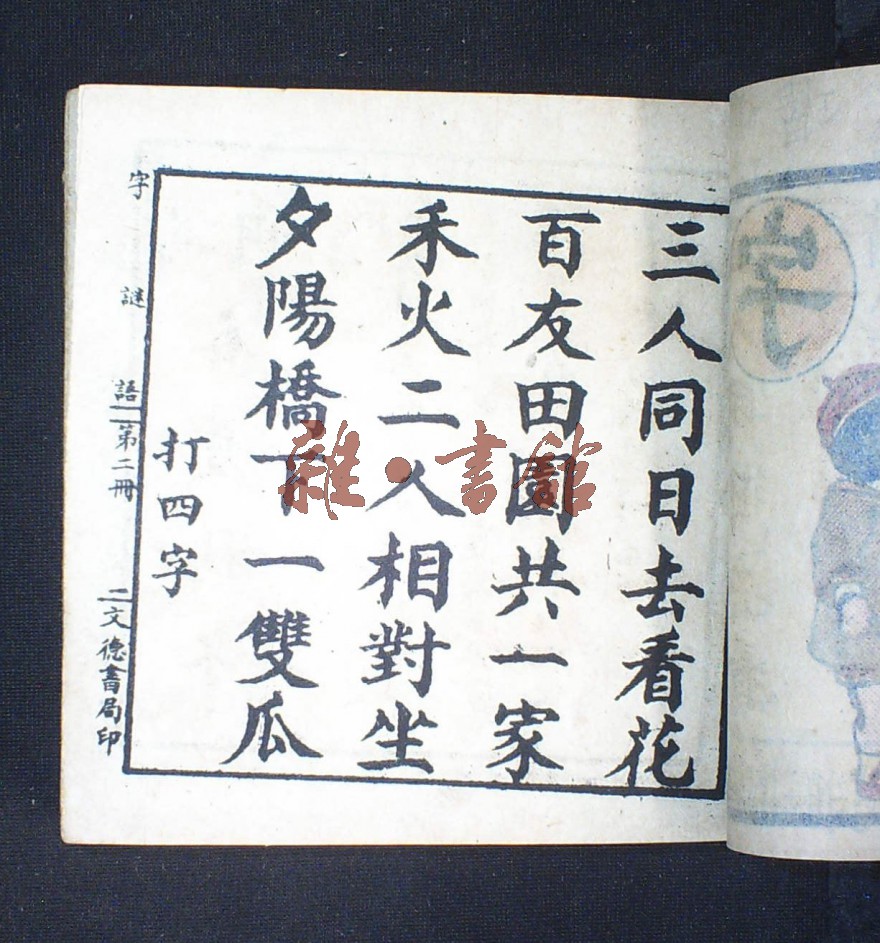 三人同日去看花
百友田園共一家
禾火二人相對坐
夕陽橋下一雙瓜
打四字
字謎語 第二冊 二 文德書局印
字
雜·書館